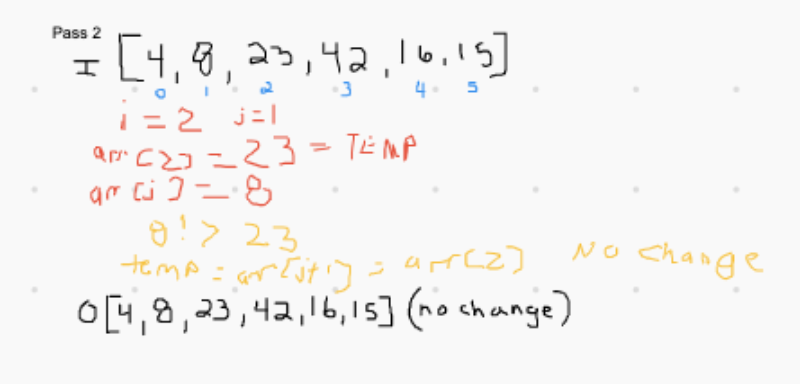 Pass 2
I [4, 8, 23, 42, 16, 15]
0 1 2 3 4 5
i = 2 j=1
arr [2] = 23 = TEMP
arr [j] = 8
8 !> 23
temp = arr[j+1] = arr[2] No change
O [4, 8, 23, 42, 16, 15] (no change)